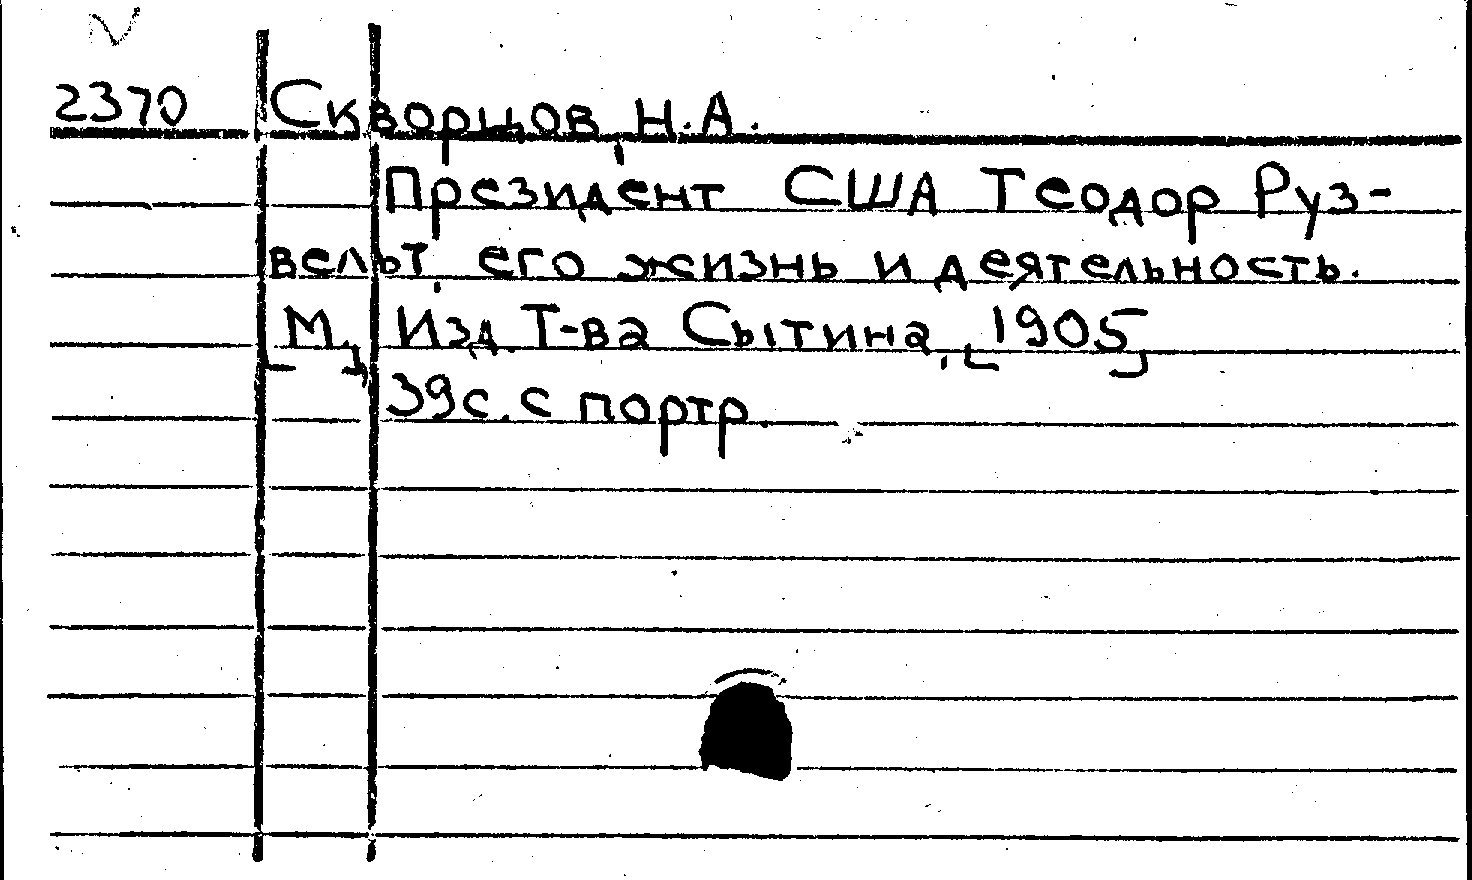 2370 Скворцов, Н.А.
Президент США Теодор Руз-
вельт, его жизнь и деятельность.
[М.], Изд. Т-ва Сытина, [1905]
39с. с портр.